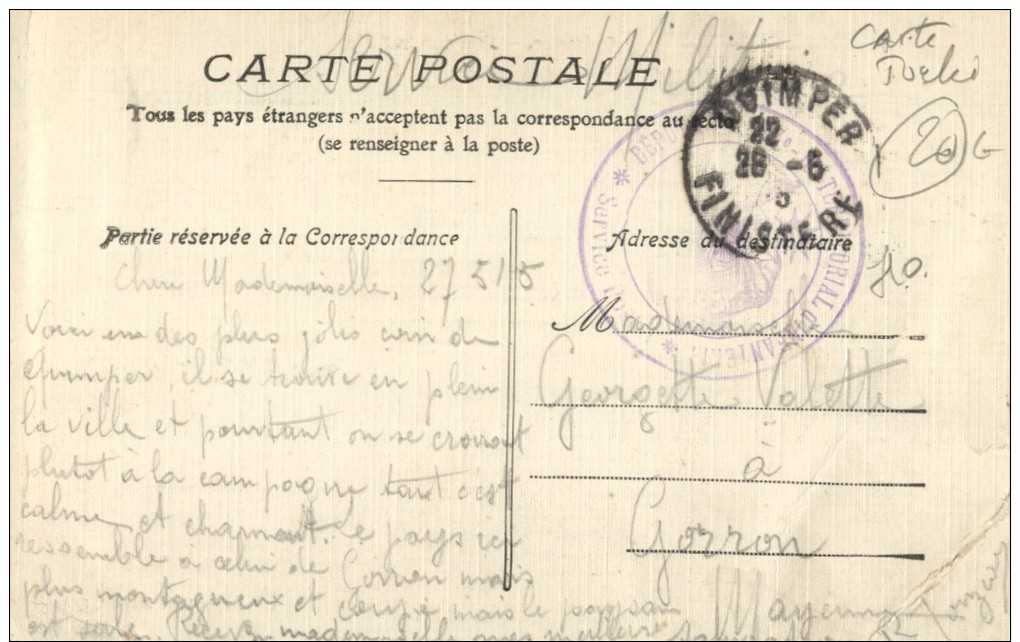 Service Militaire
Carte
CARTE POSTALE
Tous les pays étrangers n'acceptent pas la correspondance au recto
(se renseigner à la poste)
QUIMPER
22
26 -5
FINISTERE
20
Partie réservée à la Correspondance
Adresse du destinataire
Chere Mademoiselle, 27 5 15
Voici un des plus jolis coin de
Quimper, il se trouve en plein
la ville et pourtant on se croirait
plutôt à la campagne tant c'est
calme et charmant. Le pays ici
ressemble à celui de Gorron mais
plus montagneux et coupé mais le paysan
est Recevez mademoiselle mes meilleurs
Mademoiselle
Georgette Valette
à
Gorron
Mayenne
DEPOT TERRITORIAL d'INFANTERIE
Service